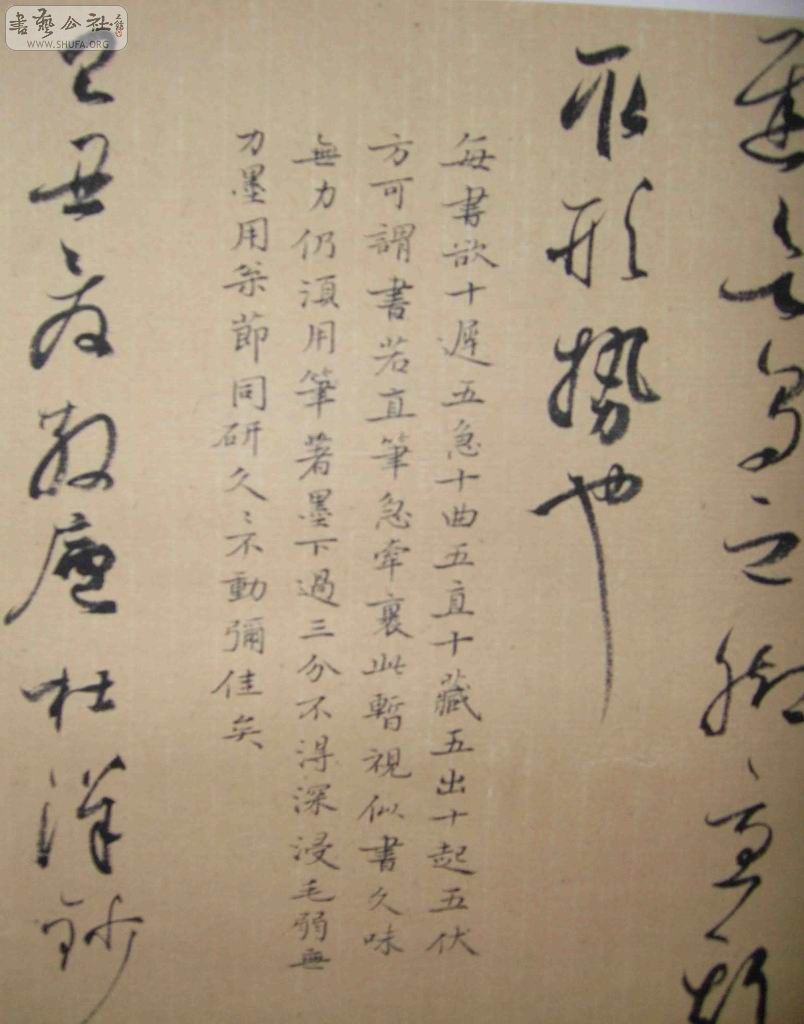 之
取形勢也
每書欲十遲五急十曲五直十藏五出十起五伏
方可謂書若直筆急牽裹此暫視似書久味
無力仍須用筆著墨下過三分不得深浸毛弱無
力墨用枩節同研久〻不動彌佳矣
丑 杜洋鈔
書藝公社
WWW.SHUFA.ORG